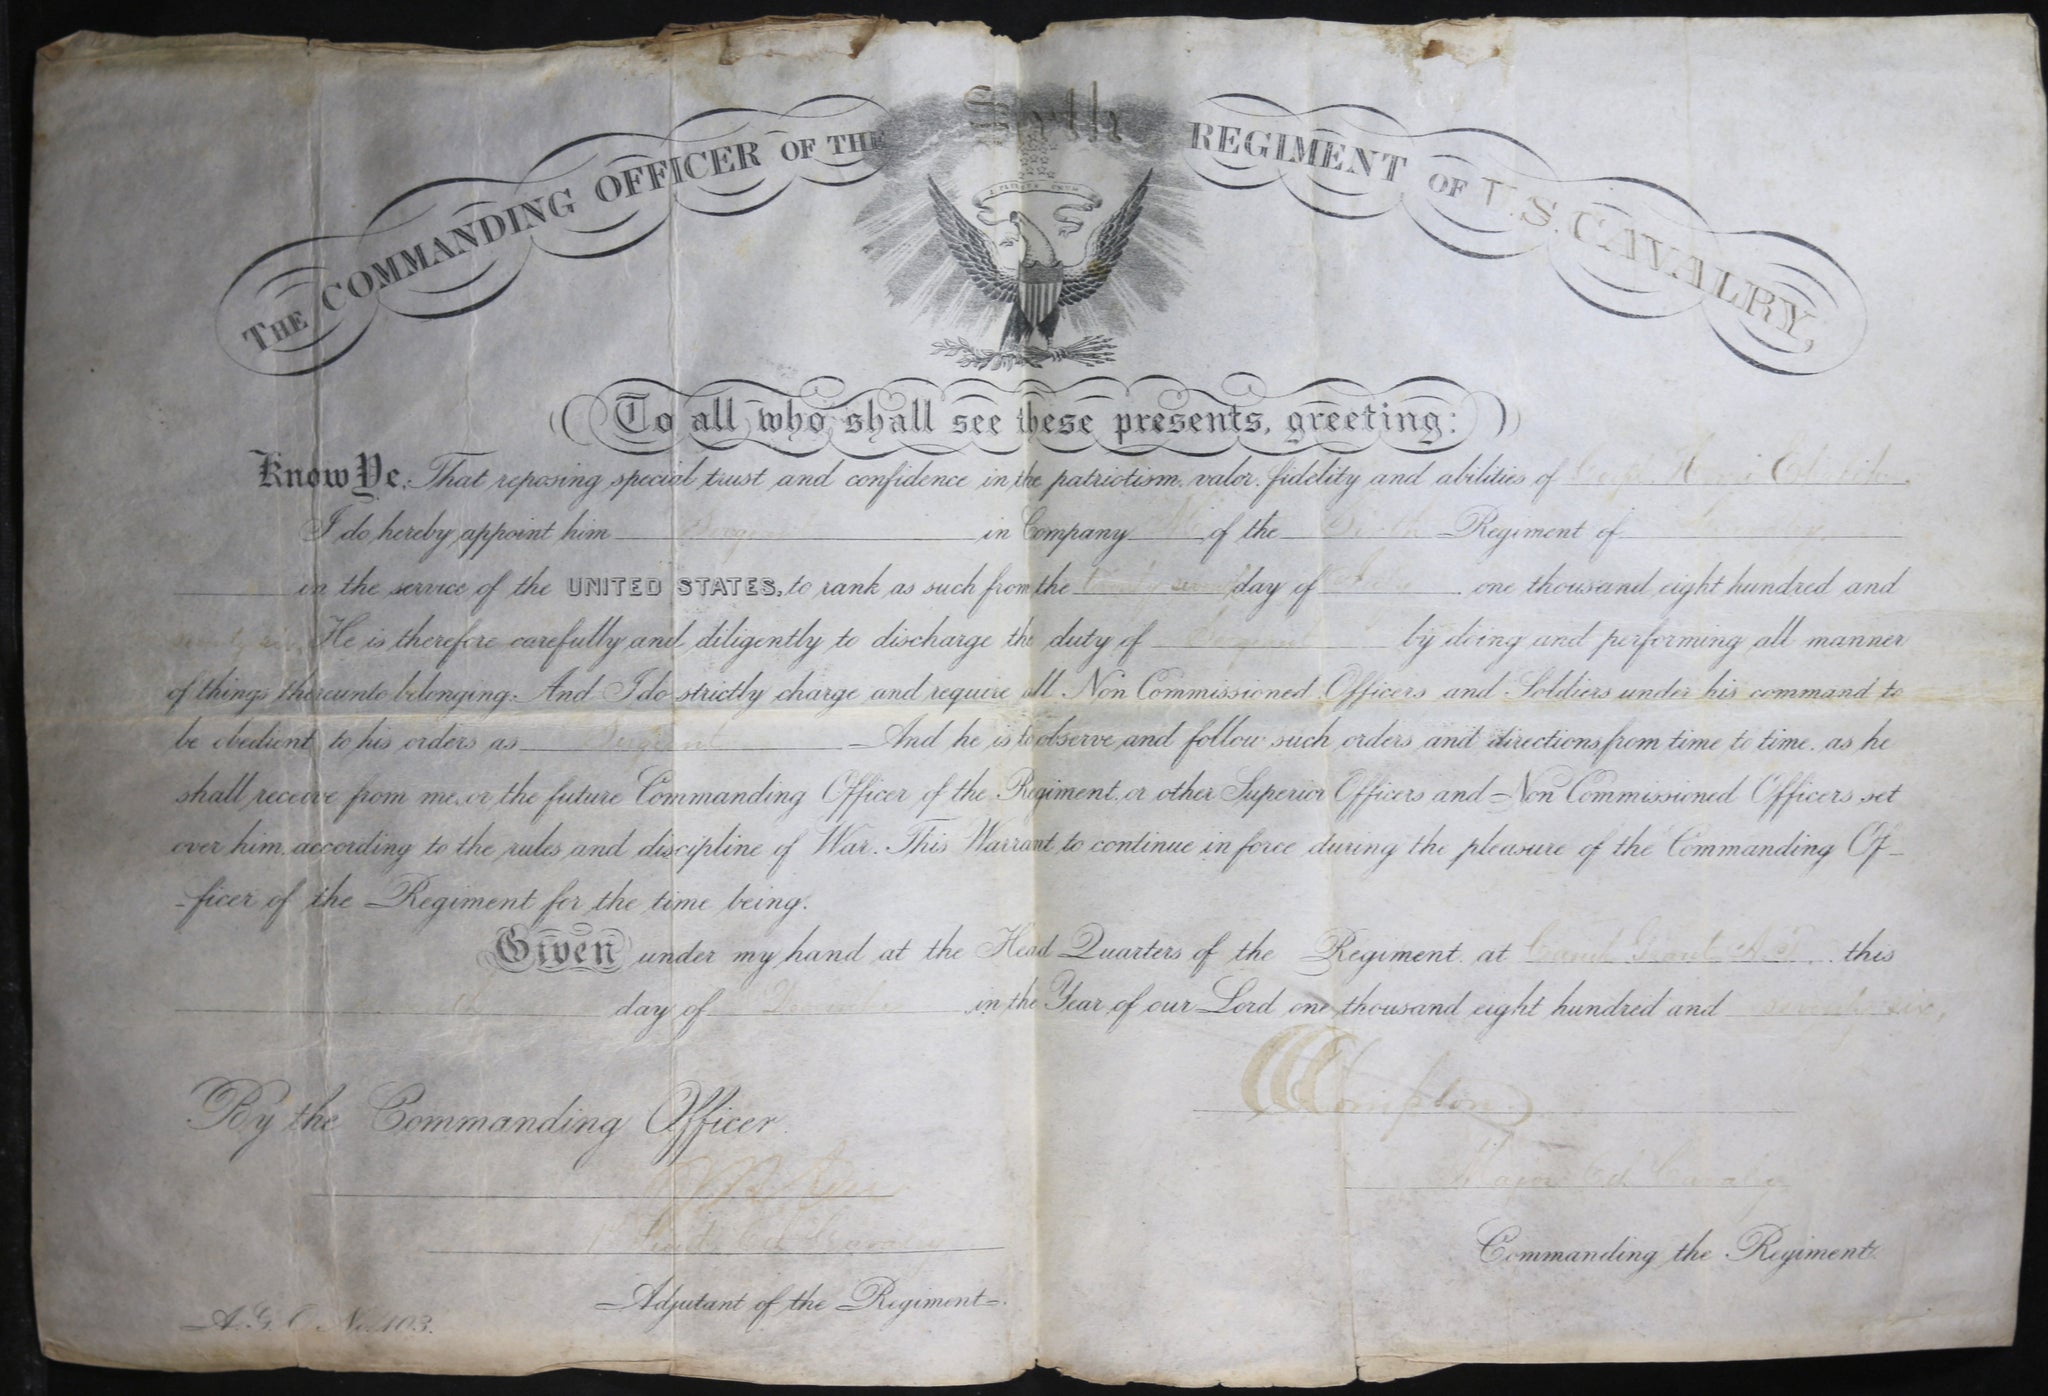 THE COMMANDING OFFICER OF THE Sixth REGIMENT OF U.S. CAVALRY,
E PLURIBUS UNUM
To all who shall see these presents, greeting:
Know Ye, That reposing special trust and confidence in the patriotism, valor, fidelity and abilities of Corpl.
I do hereby appoint him Sergeant in Company M of the Sixth Regiment of Cavalry,
in the service of the UNITED STATES, to rank as such from the day of one thousand eight hundred and
seventy six, He is therefore carefully and diligently to discharge the duty of Sergeant by doing and performing all manner
of things thereunto belonging. And I do strictly charge and require all Non Commissioned Officers and Soldiers under his command to
be obedient to his orders as Sergeant And he is to observe and follow such orders and directions from time to time, as he
shall receive from me, or the future Commanding Officer of the Regiment, or other Superior Officers and Non Commissioned Officers set
over him, according to the rules and discipline of War. This Warrant to continue in force during the pleasure of the Commanding Of-
-ficer of the Regiment for the time being.
Given under my hand at the Head Quarters of the Regiment at Camp Grant A.T. this
day of December in the Year of our Lord one thousand eight hundred and seventy-six,
CCCompton
By the Commanding Officer.
Major 6th Cavalry
1st Lieut. 6th Cavalry
Commanding the Regiment.
Adjutant of the Regiment.
A.G.O. No. 103.